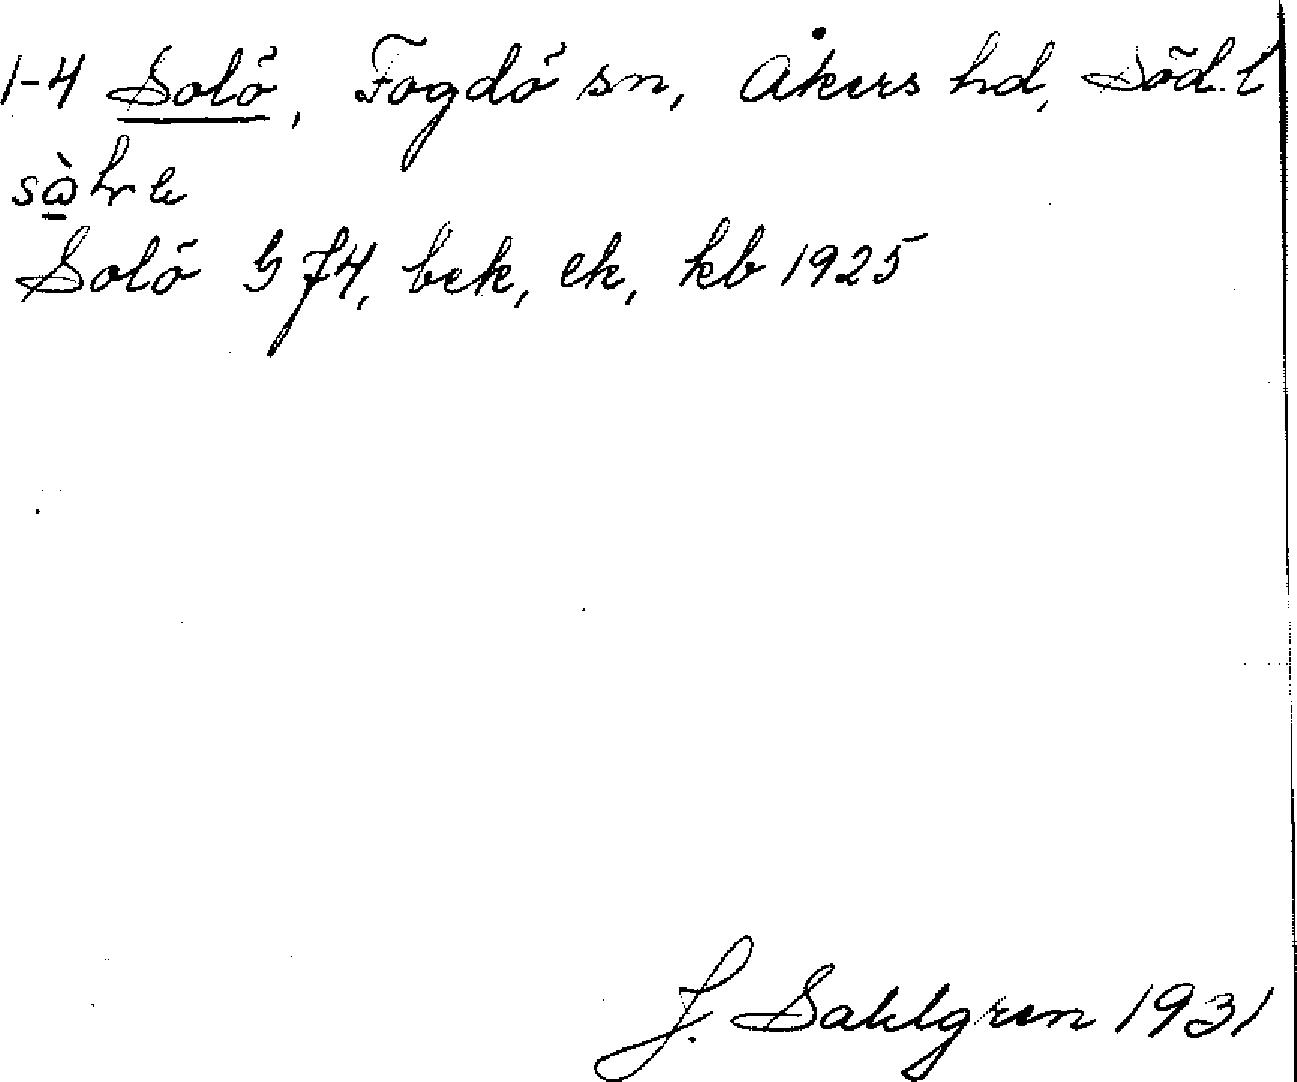 1-4 Solö, Fogdö sn, Åkers hd, Söd.l
Solö G J4, bek, ek, kb 1925
J. Sahlgren 1931